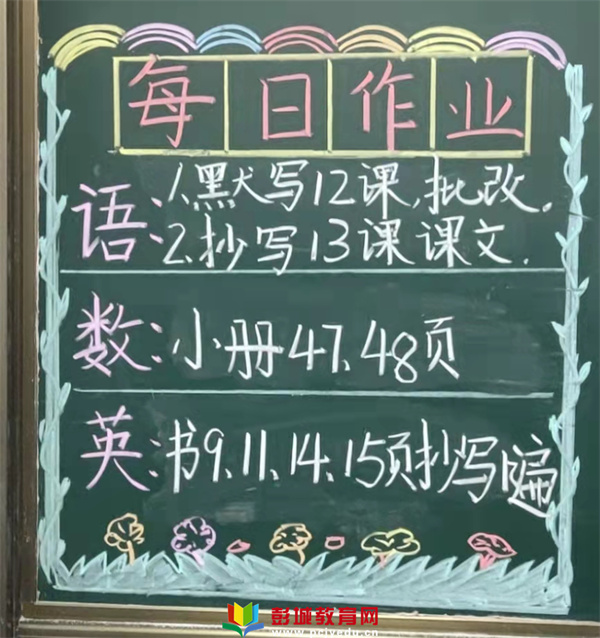 每日作业
语:1.默写12课,批改.
2.抄写13课课文.
数:小册47.48页
英:书9.11.14.15页抄写1遍
彭城教育网